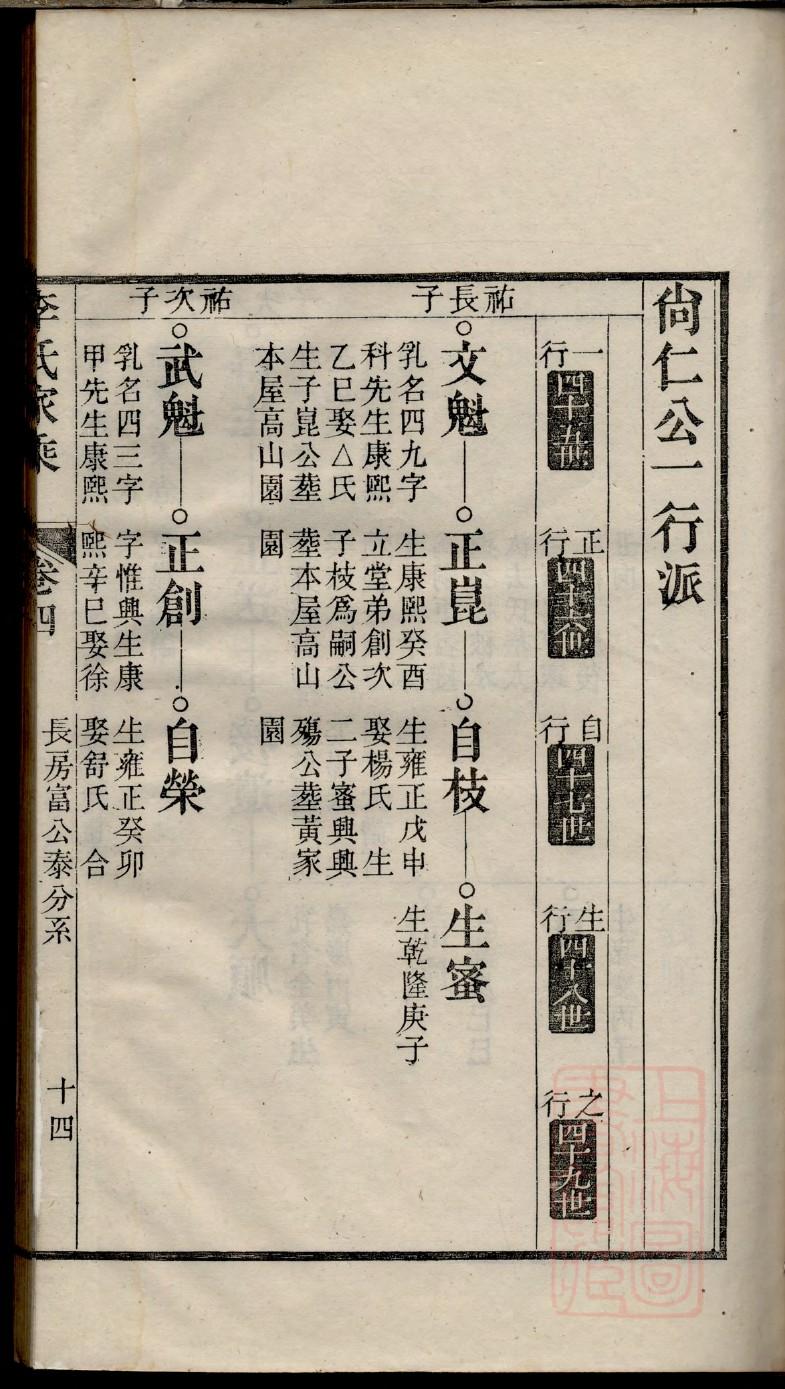 尙仁公一行派
一行
四十五世
正行
四十六世
自行
四十七世
生行
四十八世
之行
四十九世
祐長子
文魁
乳名四九字
科先生康熙
乙巳娶△氏
生子崑公塟
本屋高山園
正崑
生康熙癸酉
立堂弟創次
子枝爲嗣公
塟本屋高山
園
自枝
生雍正戊申
娶楊氏 生
二子蜜興興
殤公塟黃家
園
生蜜
生乾隆庚子
祐次子
武魁
乳名四三字
甲先生康熙
正創
字惟興生康
熙辛巳娶徐
自榮
生雍正癸卯
娶舒氏 合
李氏家乘
卷四
長房富公泰分系
十四